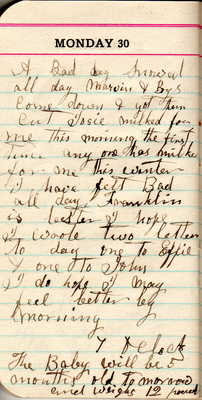 MONDAY 30
A Bad day Snowed
all day Marvin & Bys
Come down & got them
Cut Josie milked for
me this morning the first
time any one has milke
for me this winter
I have felt Bad
all day Franklin
is better I hope
I wrote two letters
to day one to Effie
& one to John
I do hope I may
feel better by
morning
7 O Clock
The Baby will be 5
months old tomorrow
and weighs 12 pound